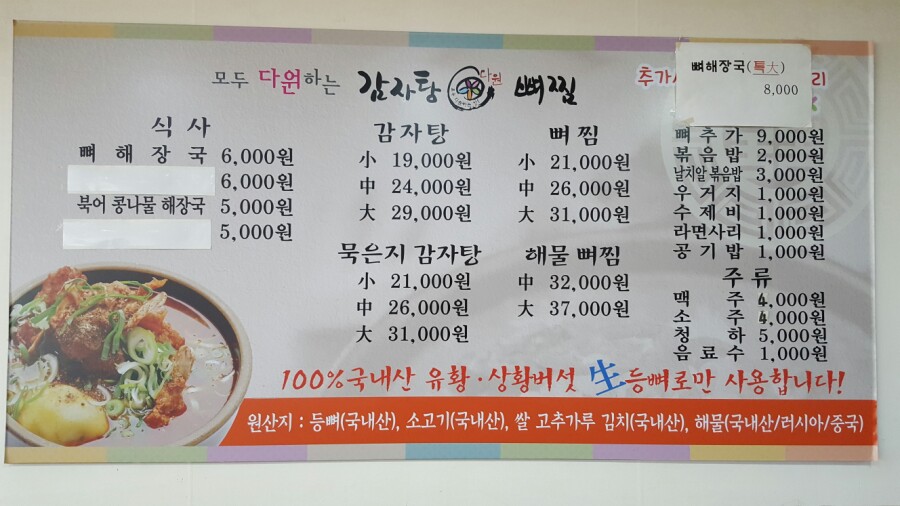 모두 다원하는 감자탕 다원 뼈찜
추가사 리
뼈해장국(특大)
8,000
식사
뼈해장국 6,000원
6,000원
북어 콩나물 해장국 5,000원
5,000원
감자탕
小 19,000원
中 24,000원
大 29,000원
묵은지 감자탕
小 21,000원
中 26,000원
大 31,000원
뼈찜
小 21,000원
中 26,000원
大 31,000원
해물 뼈찜
中 32,000원
大 37,000원
뼈추가 9,000원
볶음밥 2,000원
날치알 볶음밥 3,000원
우거지 1,000원
수제비 1,000원
라면사리 1,000원
공기밥 1,000원
주류
맥주 4,000원
소주 4,000원
청하 5,000원
음료수 1,000원
100%국내산 유황·상황버섯 生등뼈로만 사용합니다!
원산지 : 등뼈(국내산), 소고기(국내산), 쌀 고추가루 김치(국내산), 해물(국내산/러시아/중국)